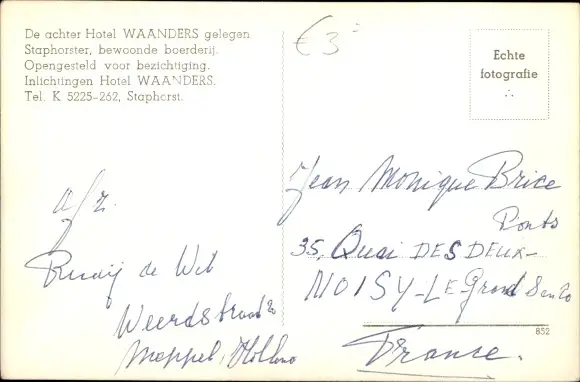 De achter Hotel WAANDERS gelegen
Staphorster, bewoonde boerderij.
Opengesteld voor bezichtiging.
Inlichtingen Hotel WAANDERS.
Tel. K 5225-262, Staphorst.
€ 3
Echte
fotografie
Jean Monique Brice
Ponts
35, Quai DES DEUX-
NOISY-LE-Grand
France.
852
afz.
de Wit
Meppel, Holland